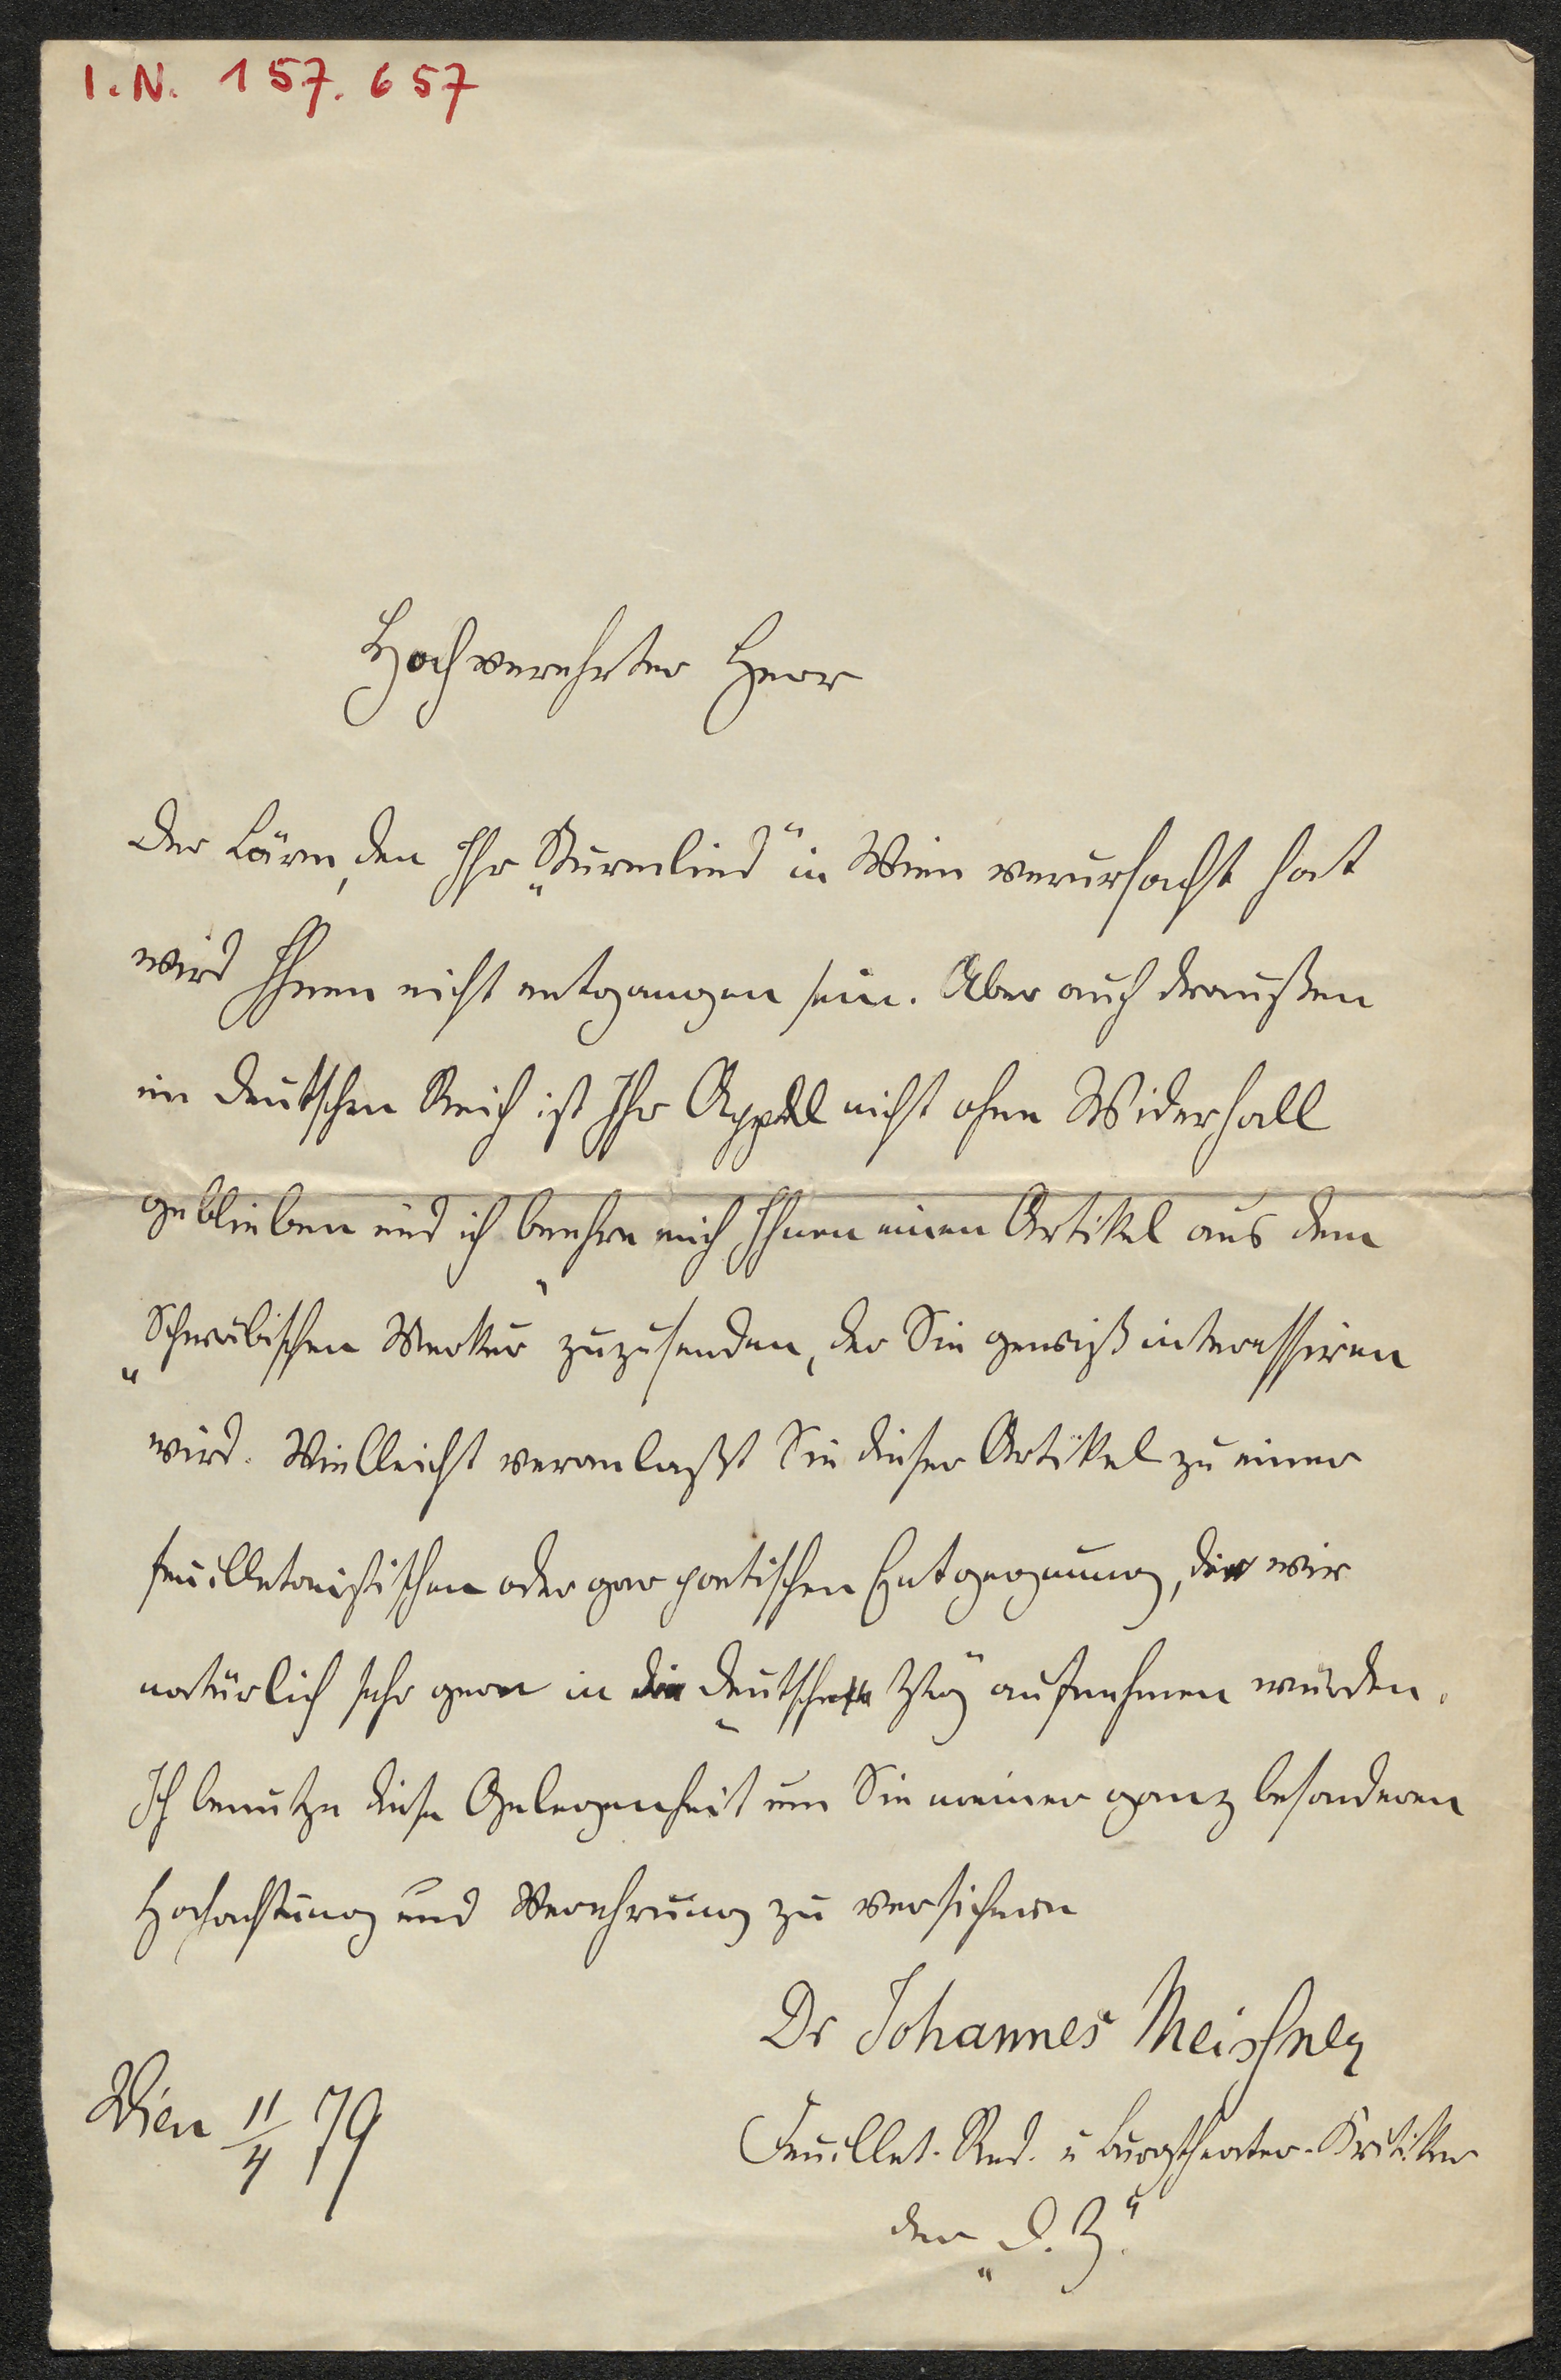 I.N. 157.657
Hochverehrter Herr
Der Lärm, den Ihr „Sturmlied" in Wien verursacht hat
wird Ihnen nicht entgangen sein. Aber auch draußen
im deutschen Reich ist Ihr Appell nicht ohne Widerhall
geblieben und ich beehre mich Ihnen einen Artikel aus dem
„Schwäbischen Merkur" zuzusenden, der Sie gewiß interessiren
wird. Vielleicht veranlaßt Sie dieser Artikel zu einer
feuilletonistischen oder gar poetischen Entgegnung, die wir
natürlich sehr gern in die „Deutsche Ztg" aufnehmen würden.
Ich benutze diese Gelegenheit um Sie meiner ganz besonderen
Hochachtung und Verehrung zu versichern
Dr Johannes Meißner
Feuillet. Red. u Burgtheater-Kritiker
der „D. Z."
Wien 11/4 79